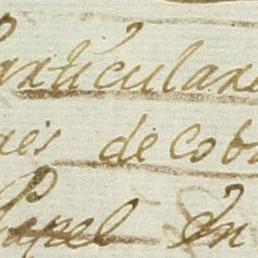 articulare
de cob
Papel En